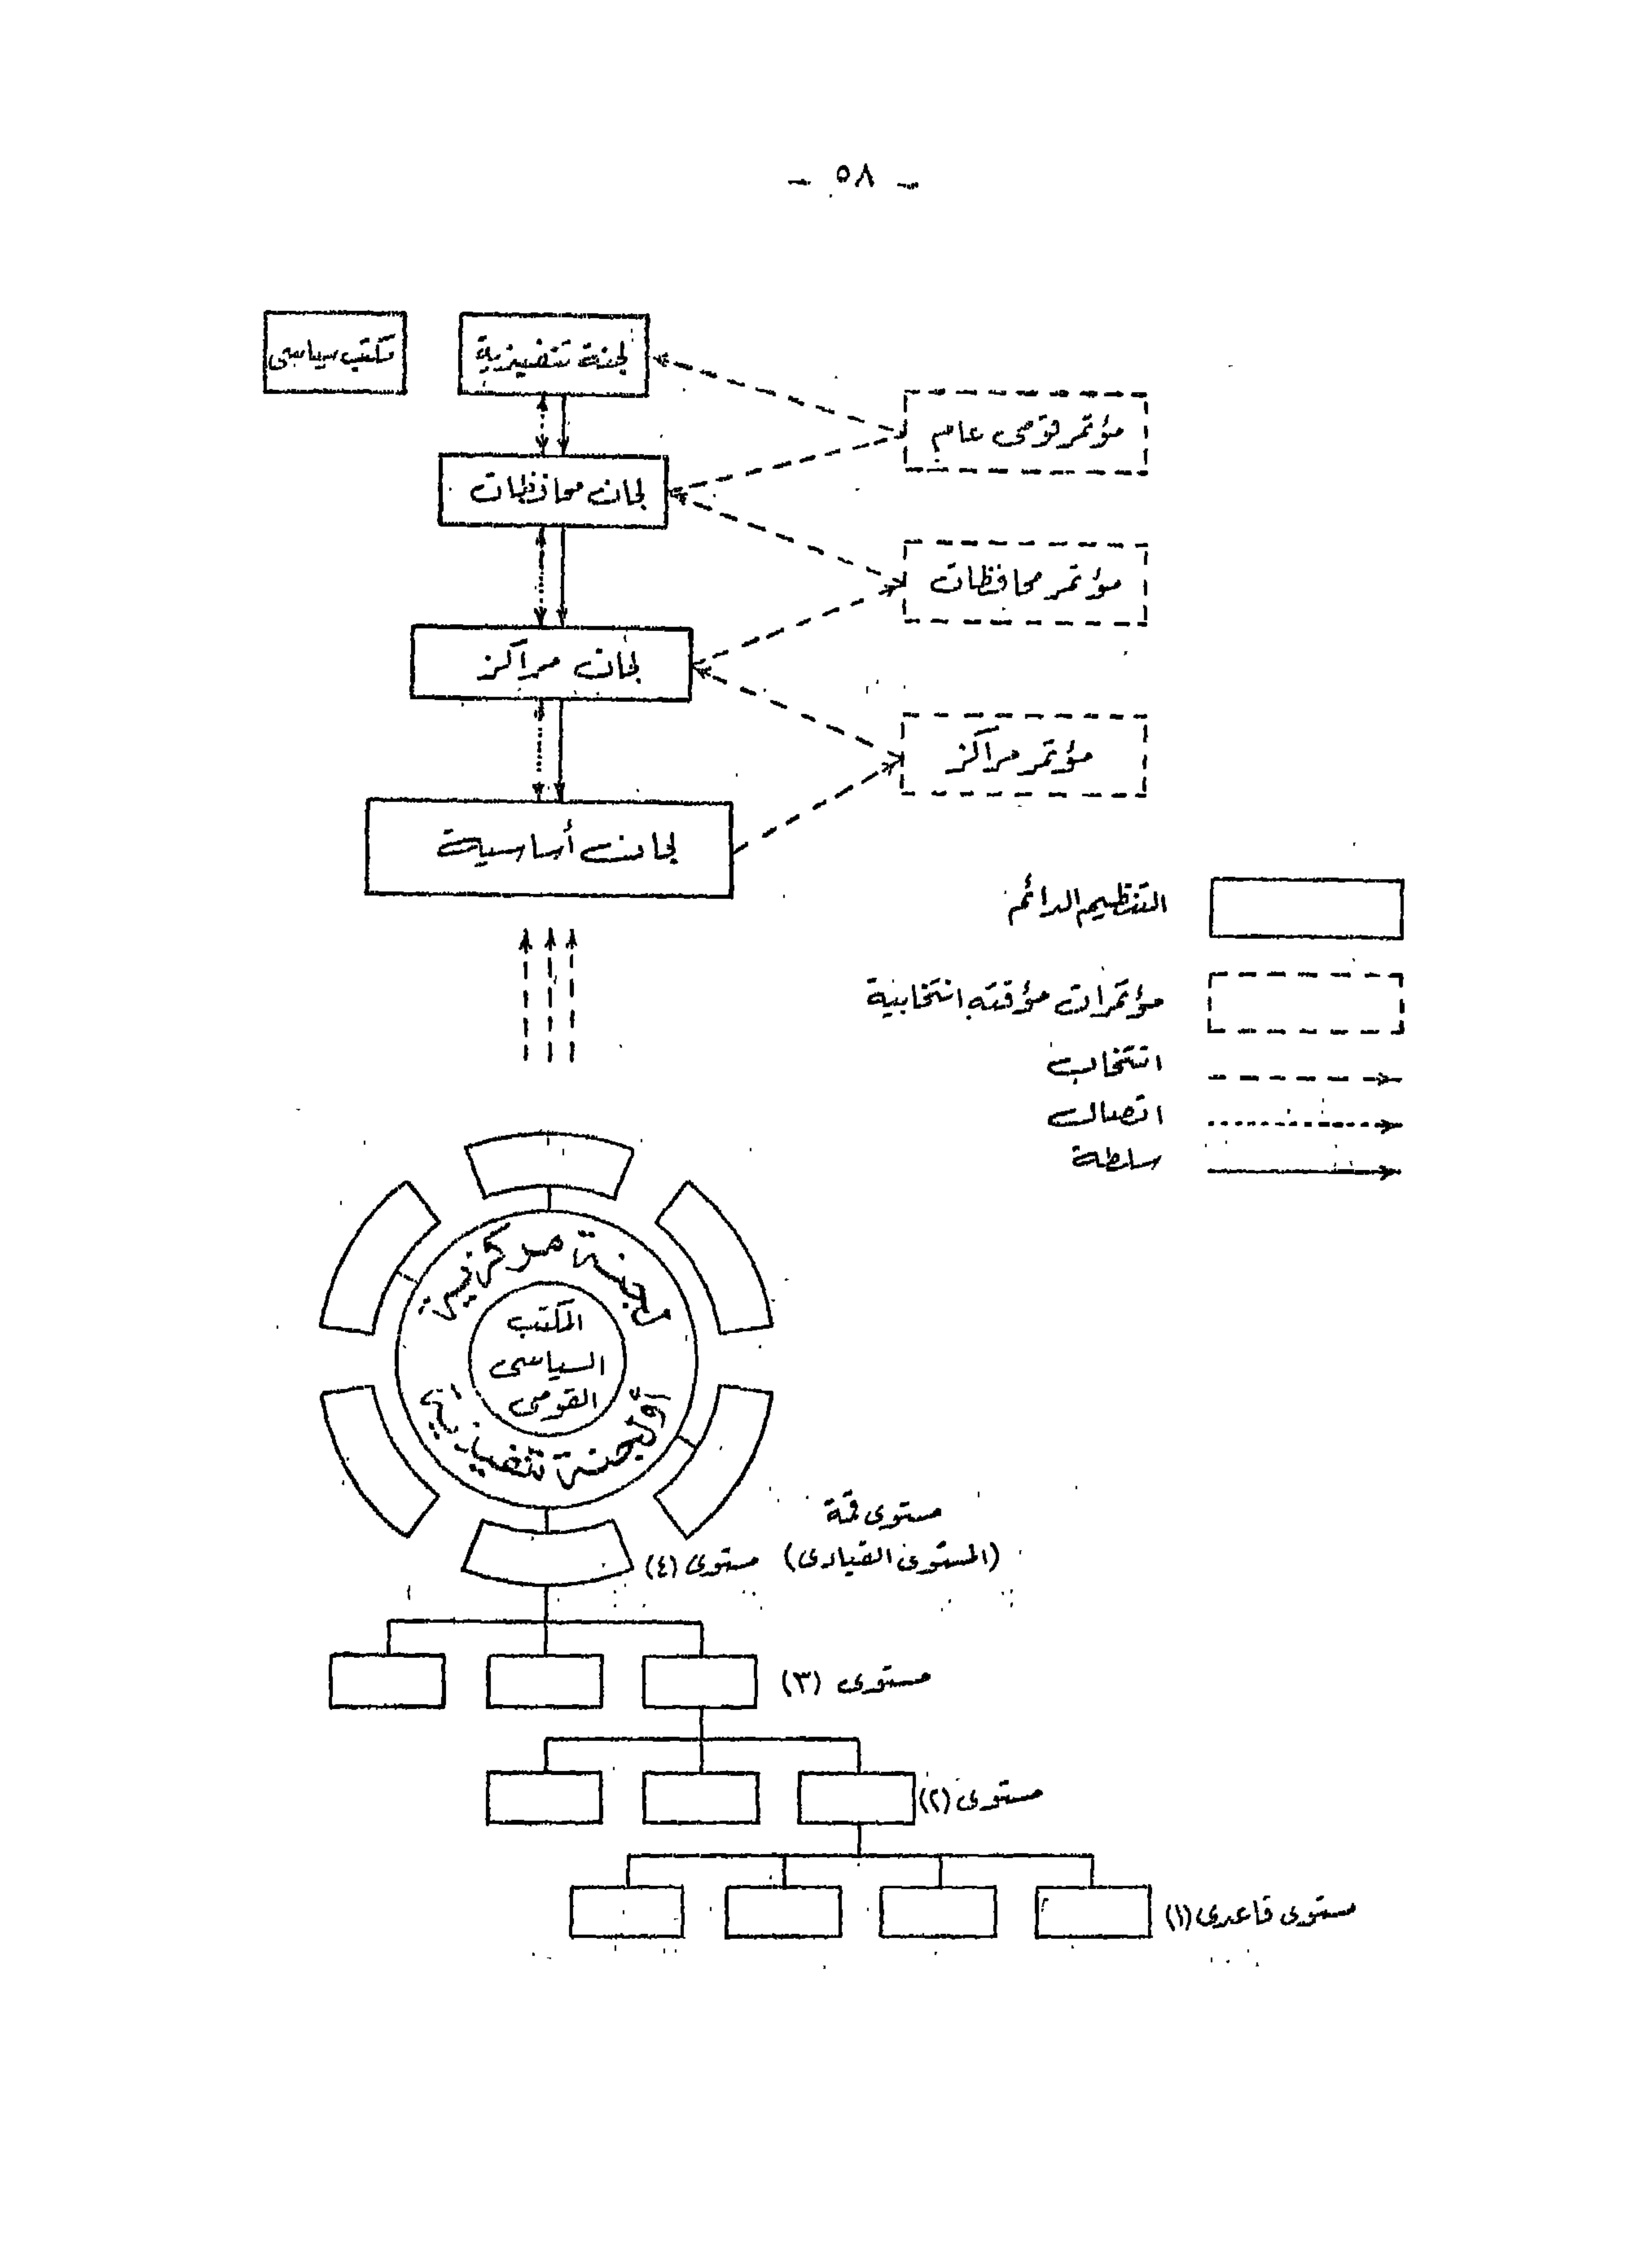 - ٥٨ -
لجنة تنفيذية
مكتب سياسى
مؤتمر قومى عام
لجان محافظات
مؤتمر محافظات
لجان مراكز
مؤتمر مراكز
لجان أساسية
التنظيم الدائم
مؤتمرات مؤقته انتخابية
انتخاب
اتصال
سلطة
لجنة مركزية
المكتب
السياسى
القومى
أو لجنة تنفيذية
مستوى قمة
(المستوى القيادى) مستوى (٤)
مستوى (٣)
مستوى (٢)
مستوى قاعدى (١)